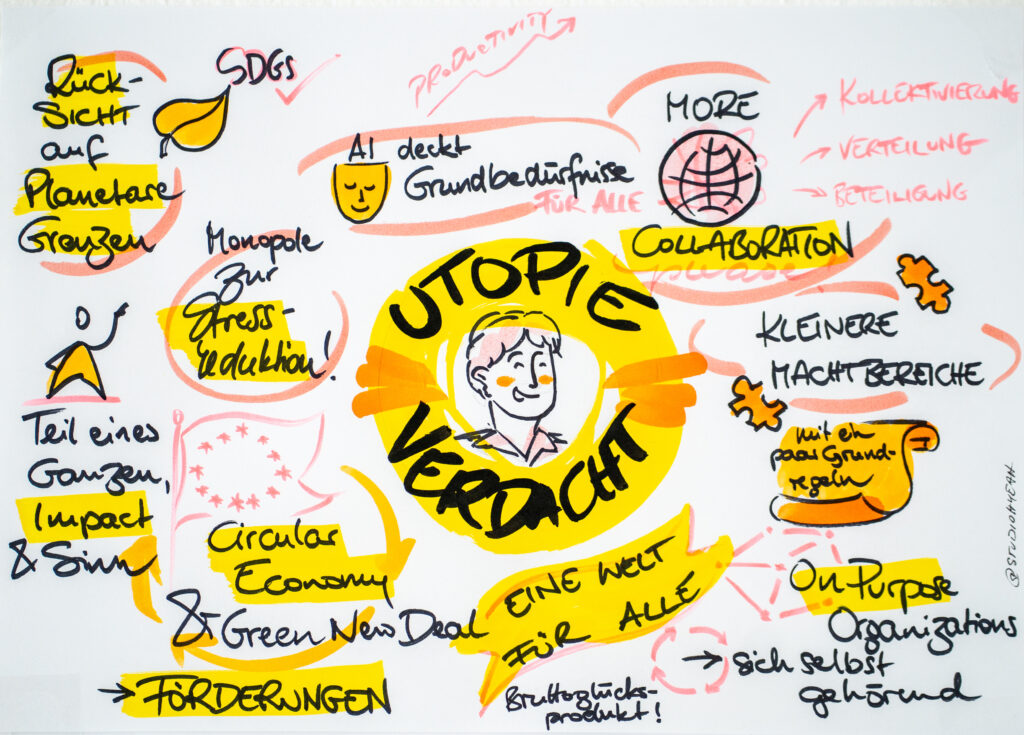 RÜCK-
SICHT
auf
Planetare
Grenzen
SDGs
PRODUCTIVITY
AI deckt
Grundbedürfnisse
FÜR ALLE
MORE
COLLABORATION
please!
KOLLEKTIVIERUNG
VERTEILUNG
BETEILIGUNG
Monopole
zur
Stress-
reduktion!
UTOPIE
VERDACHT
KLEINERE
MACHTBEREICHE
mit ein
paar Grund-
regeln
Teil eines
Ganzen,
Impact
& Sinn
Circular
Economy
& Green New Deal
→ FÖRDERUNGEN
EINE WELT
FÜR ALLE
Bruttoglücks-
produkt!
On Purpose
Organizations
→ sich selbst
gehörend
@STUDIOHYEAH